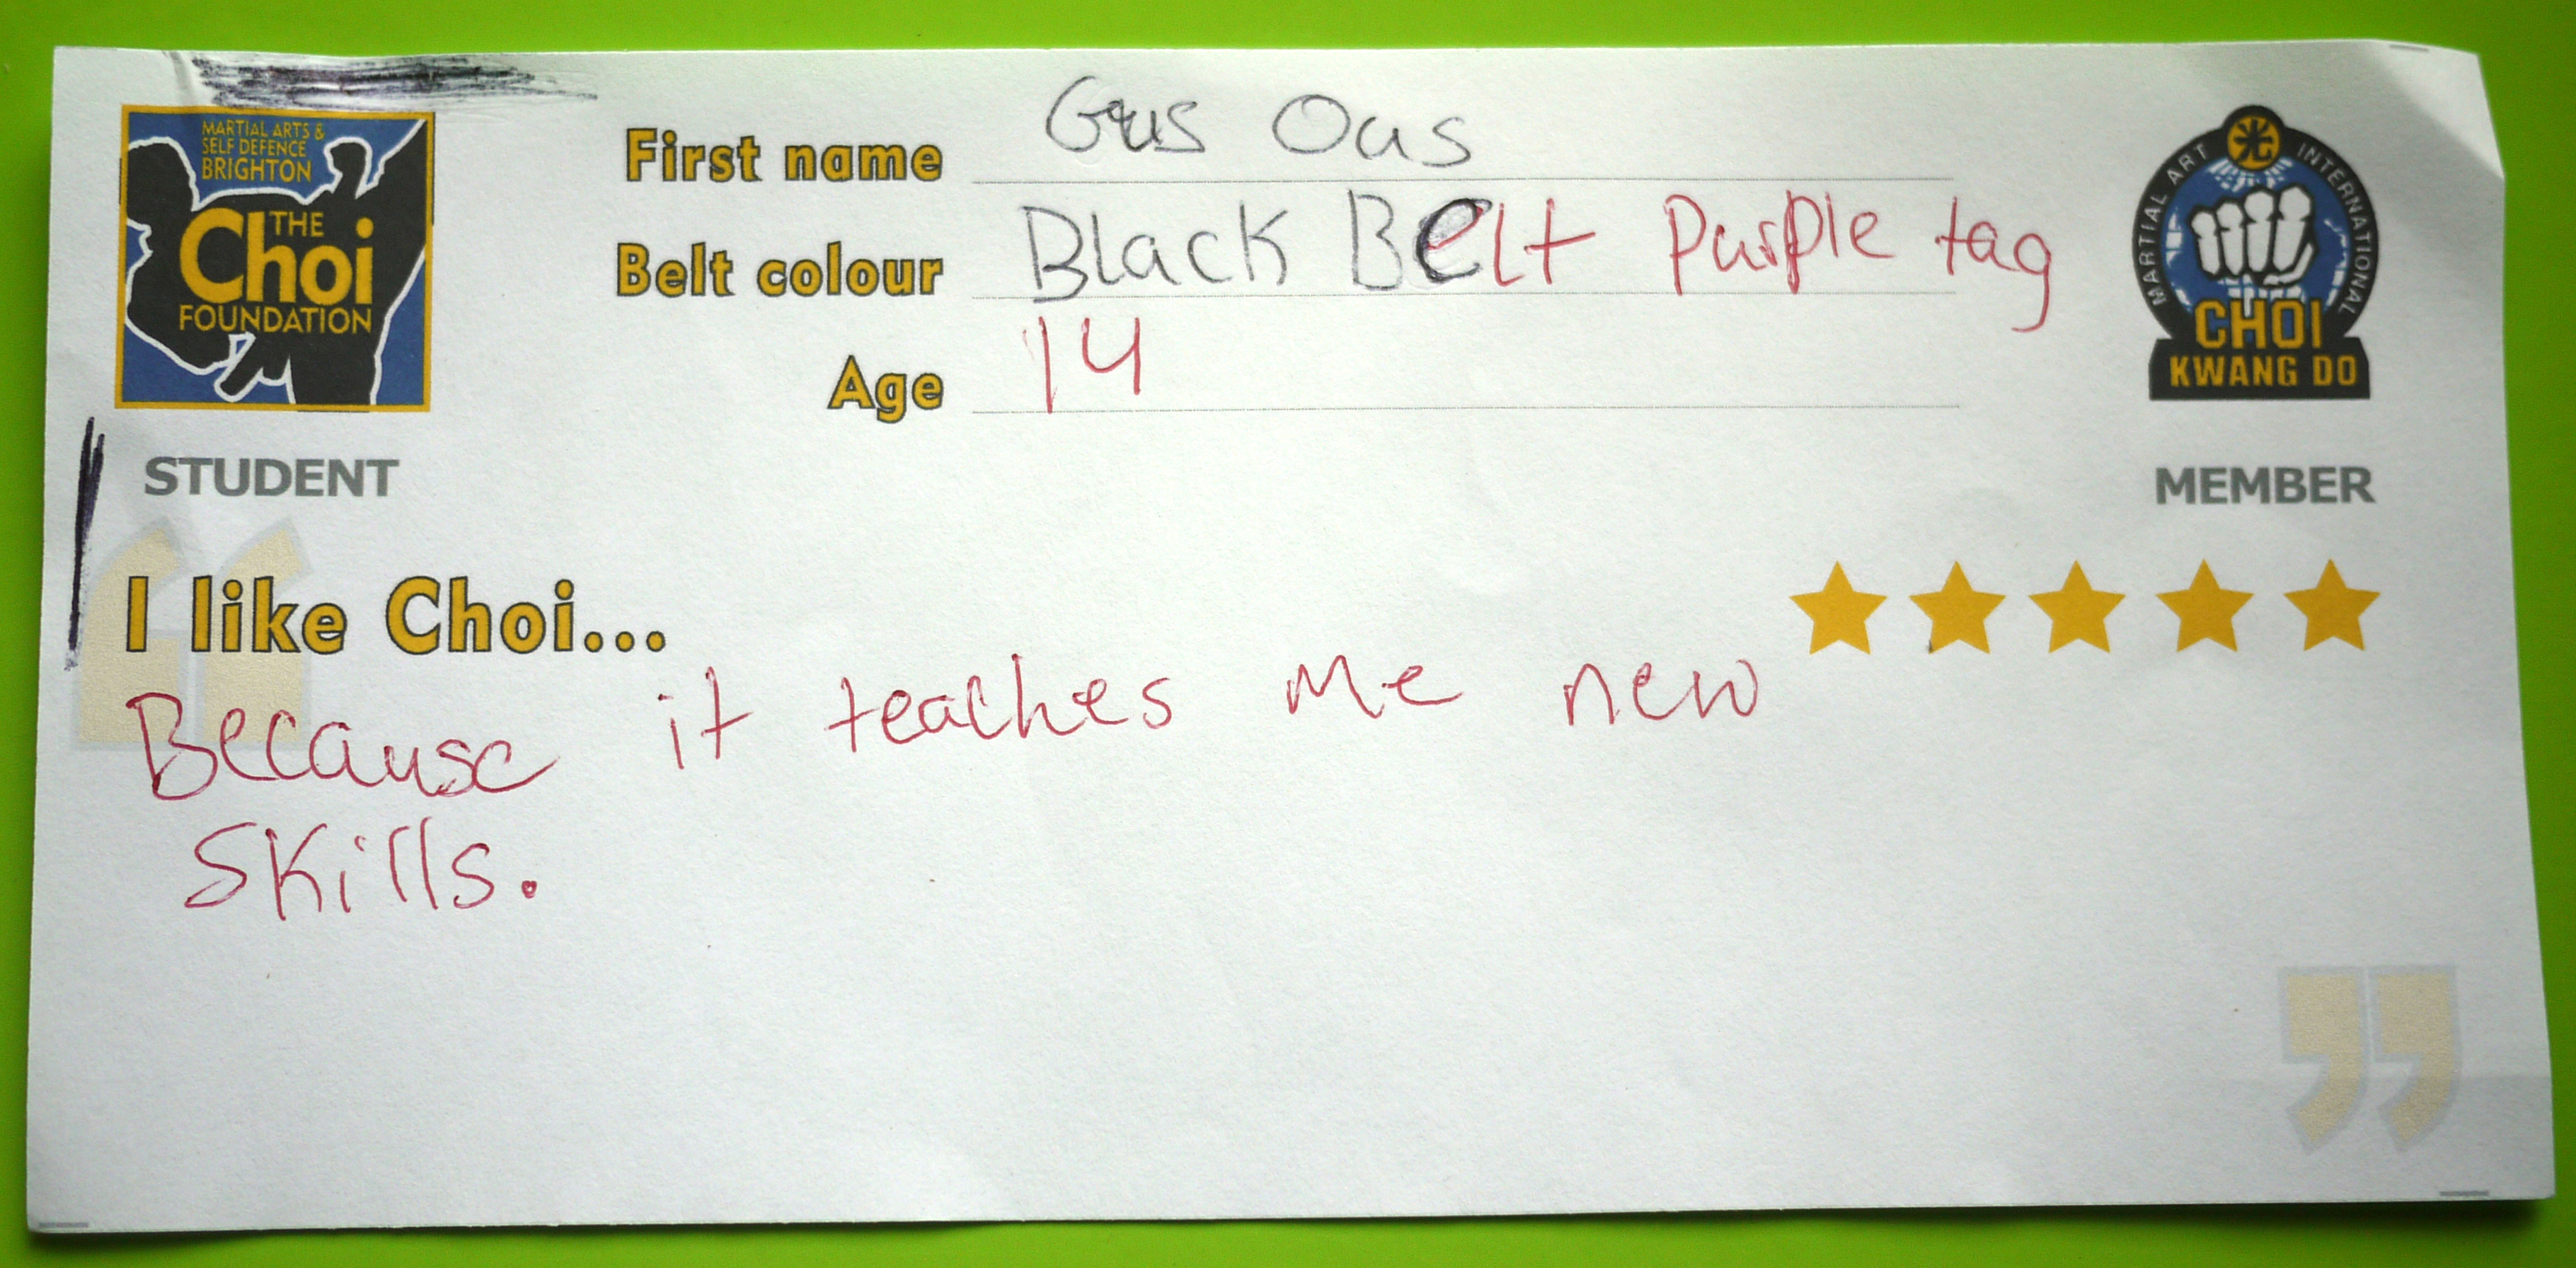 MARTIAL ARTS &
SELF DEFENCE
BRIGHTON
THE
Choi
FOUNDATION
STUDENT
First name Gus Ous
Belt colour Black Belt Purple tag
Age 14
MARTIAL ART INTERNATIONAL
光
CHOI
KWANG DO
MEMBER
“
I like Choi...
Because it teaches me new
Skills.
”